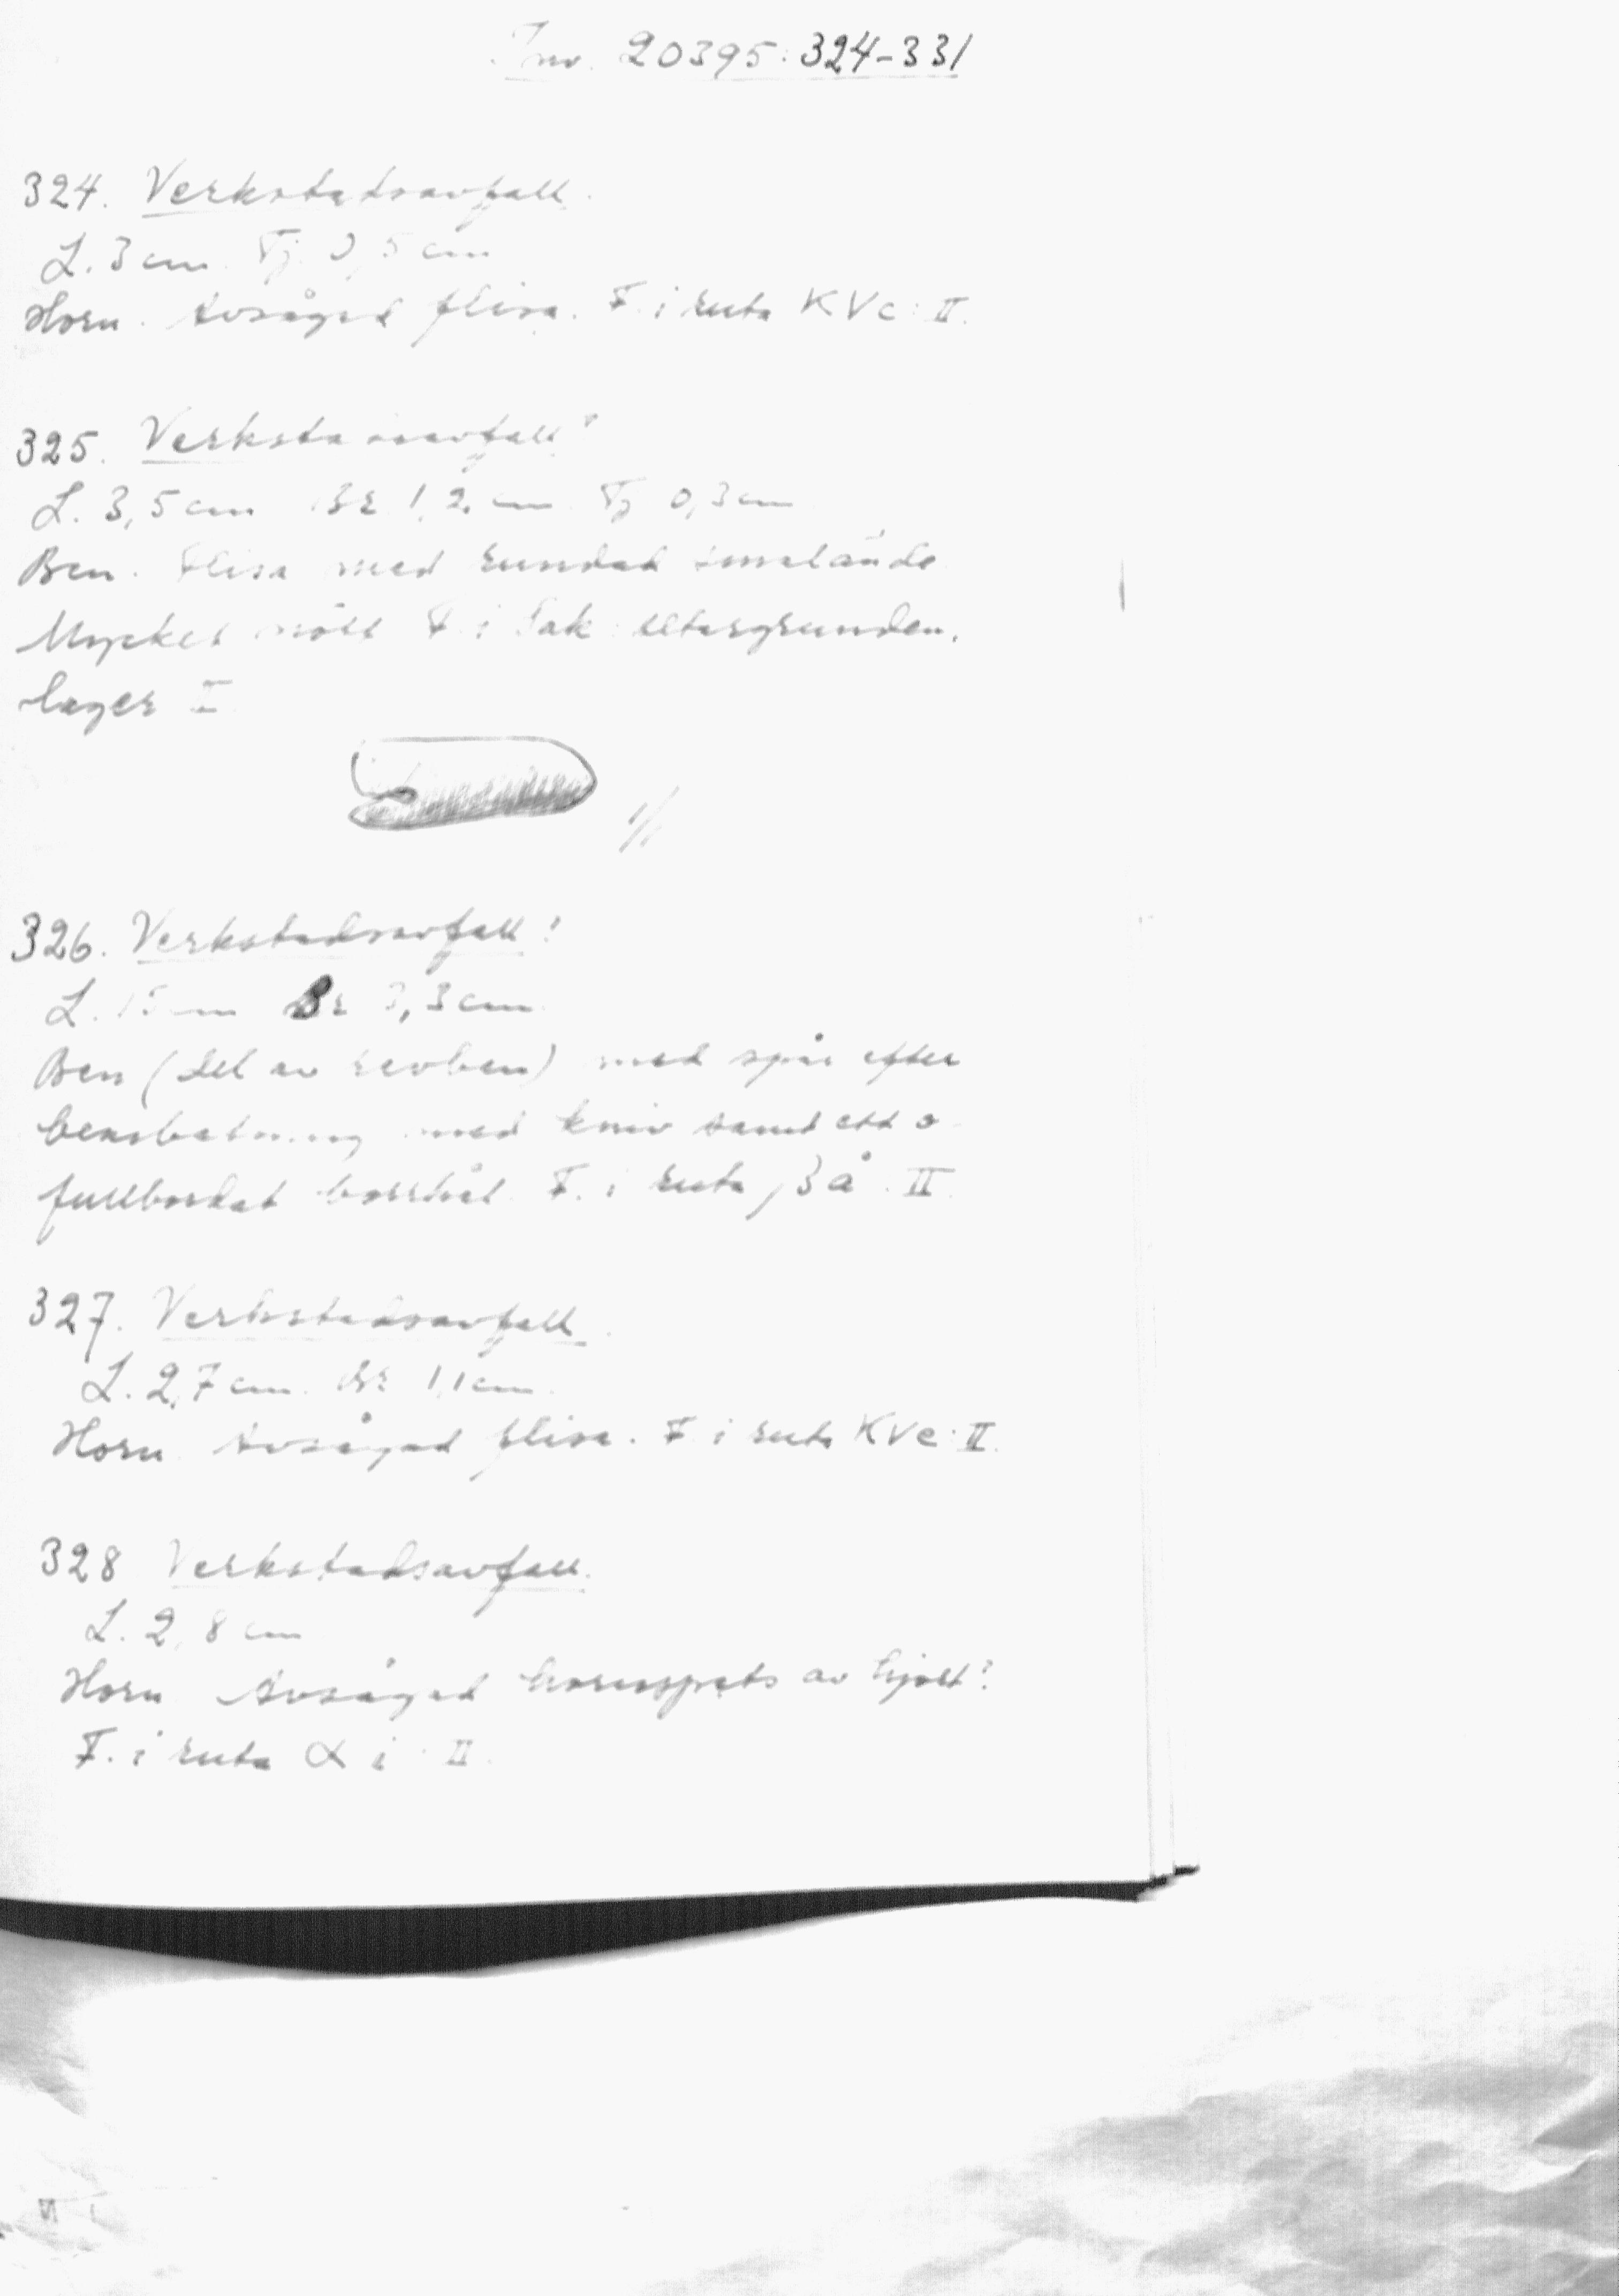 Inv. 20395: 324-331
324. Verkstadsavfall.
L. 3 cm. Tj. 0,5 cm
Horn. Avsågad flisa. F. i ruta KVc: II.
325. Verkstadsavfall?
L. 3,5 cm Br 1,2 cm Tj 0,3 cm
Ben. Flisa med rundad
Mycket nött F. i Sak. altargrunden,
lager I
1/1
326. Verkstadsavfall?
L. 15 cm Br 3,3 cm
Ben (del av revben) med spår efter
bearbetning med kniv samt ett o-
fullbordat borrhål. F. i ruta βå. II
327. Verkstadsavfall.
L. 2,7 cm. Br 1,1 cm.
Horn. Avsågad flisa. F i ruta KVc: II.
328 Verkstadsavfall.
L. 2,8 cm
Horn Avsågad hornspets av hjort?
F. i ruta α i : II.